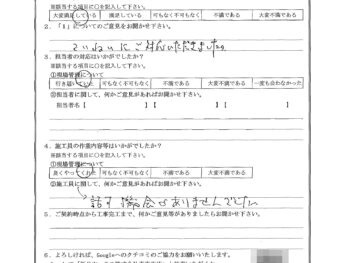 ※該当する項目に○を記入して下さい。
大変満足している 満足している 可もなく不可もなく 不満である 大変不満である
2．「１」についてのご意見をお聞かせ下さい。
ていねいにご対応いただきました。
3．担当者の対応はいかがでしたか？
※該当する項目に○を記入して下さい。
①現場管理について
行き届いていた 可もなく不可もなく 不満である 大変不満である 一度も会わなかった
②担当者に関して、何かご意見があればお聞かせ下さい。
担当者名【 】【 】【 】
4．施工員の作業内容等はいかがでしたか？
※該当する項目に○を記入して下さい。
①現場管理について
良くやっていた 可もなく不可もなく 不満である 大変不満である
②施工員に関して、何かご意見があればお聞かせ下さい。
話す機会がありませんでした
5．ご契約時点から工事完工まで、何かご意見等がありましたらお聞かせ下さい。
6．よろしければ、Googleへのクチコミのご協力をお願いします。